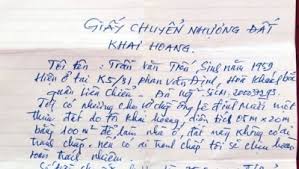 GIẤY CHUYỂN NHƯỢNG ĐẤT
KHAI HOANG.
Tôi tên : Trần Văn Tiến, Sinh năm 1959
Hiện ở tại K5/31 phan Văn Định, Hoà Khánh Bắc
quận Liên Chiểu - Đà Nẵng
Tôi có nhượng cho vợ chồng ông Lê Đình Mười một
thửa đất do tôi khai hoang, diện tích 05m x 20m
bằng 100m² để làm nhà ở, đất này không có ai
tranh chấp. nếu có ai tranh chấp tôi sẽ chịu hoàn
toàn trách nhiệm.